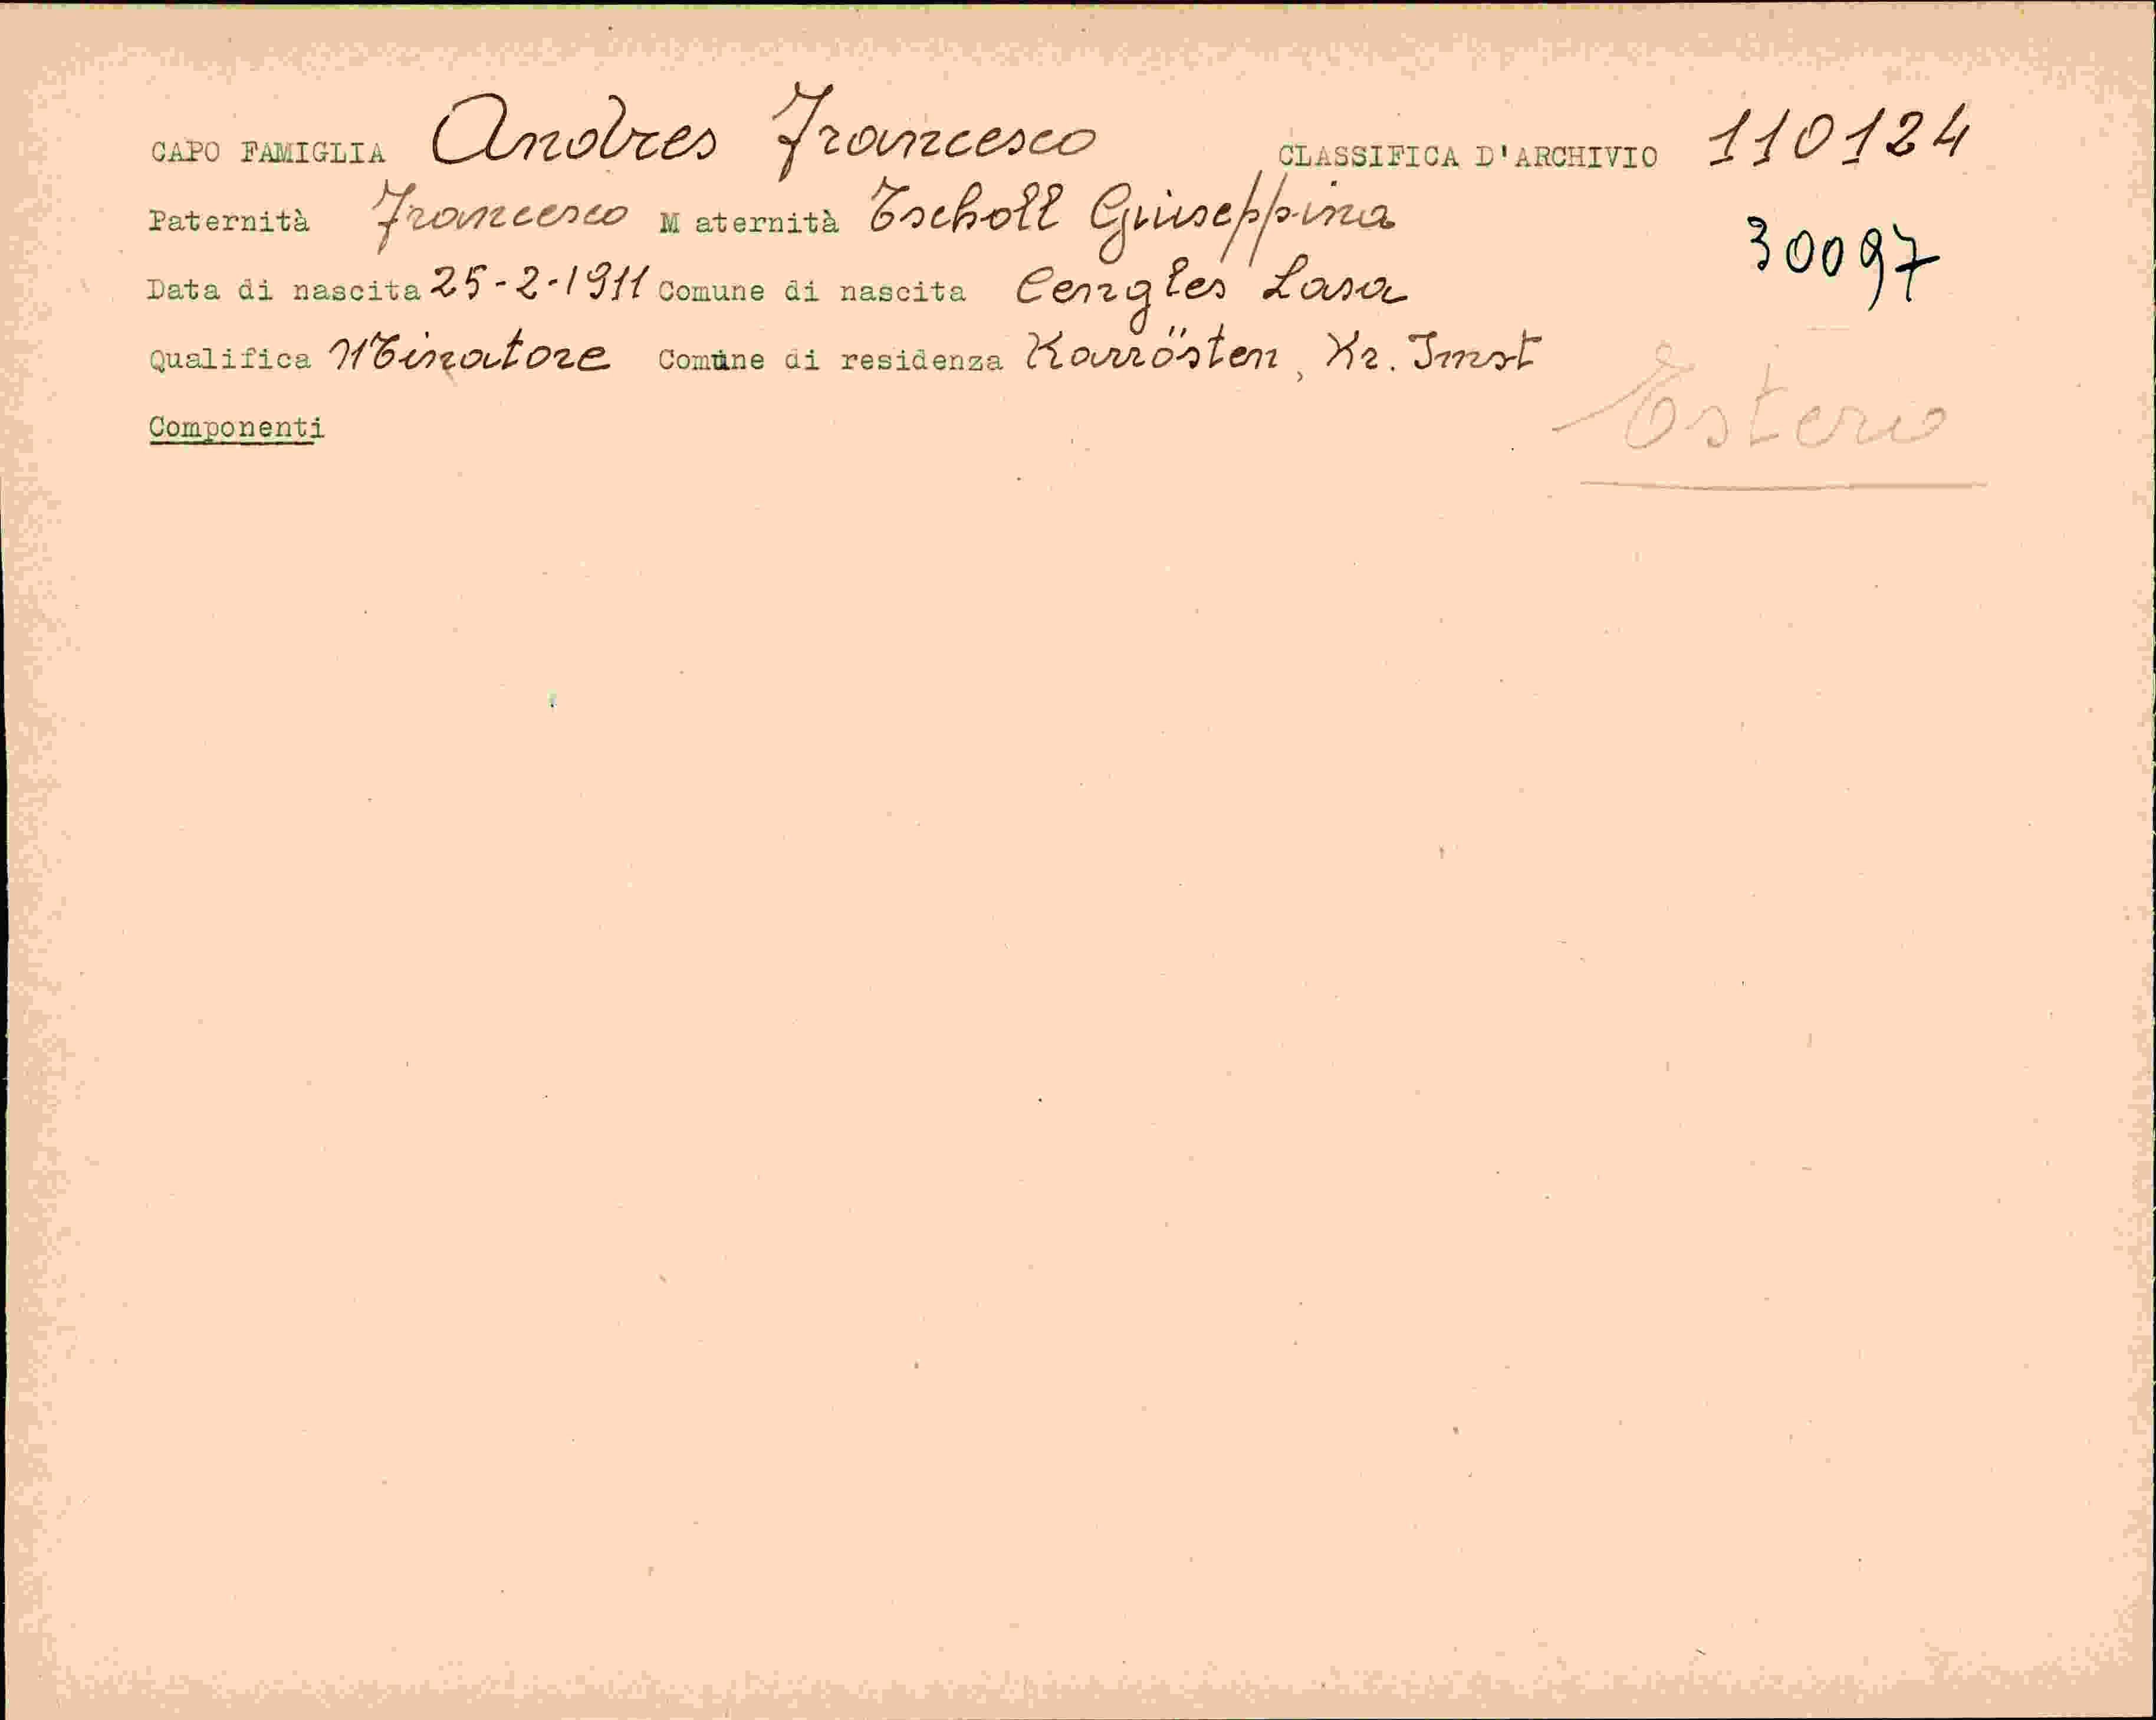 CAPO FAMIGLIA Andres Francesco CLASSIFICA D'ARCHIVIO 110124
Paternità Francesco M aternità Tscholl Giuseppina 30097
Data di nascita 25-2-1911 Comune di nascita Cengles Lasa
Qualifica Minatore Comune di residenza Karrösten, Kr. Imst
Estero
Componenti